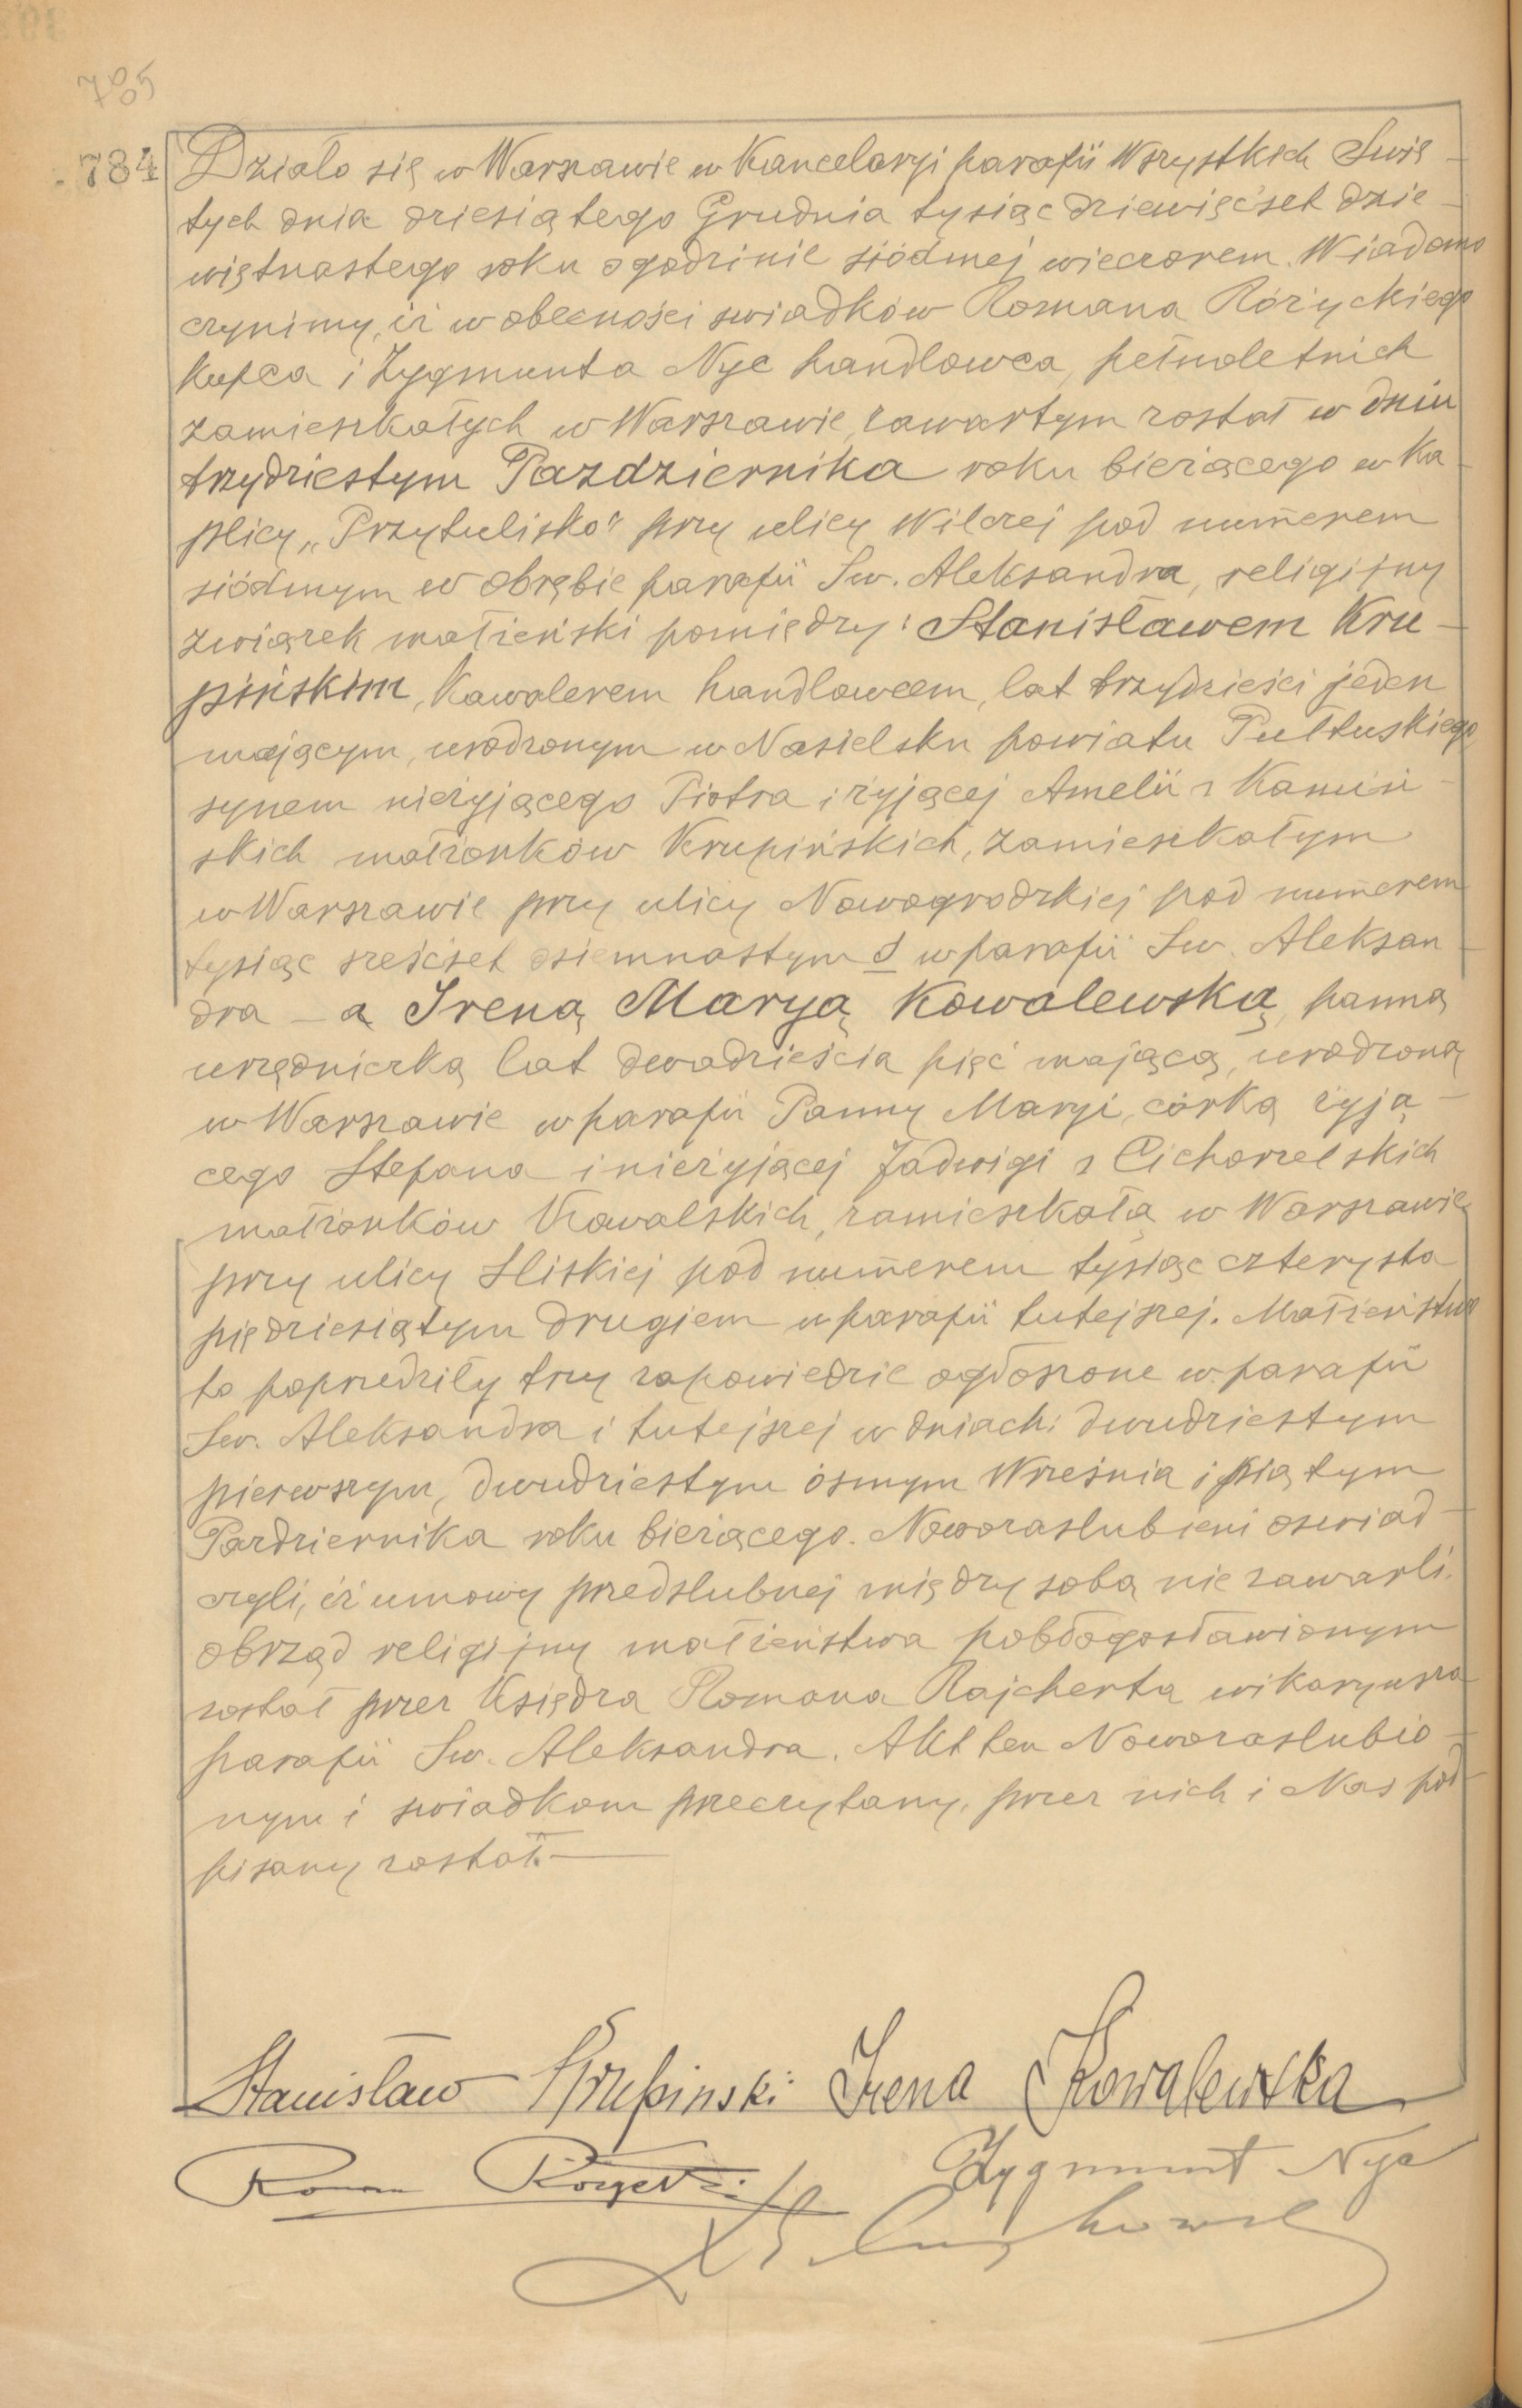 785
784
Działo się w Warszawie w Kancelaryi parafii Wszystkich Swię-
tych dnia dziesiątego Grudnia tysiąc dziewięćset dzie-
więtnastego roku o godzinie siódmej wieczorem. Wiadomo
czynimy, iż w obecności swiadków Romana Różyckiego
kupca i Zygmunta Nyc handlowca, pełnoletnich
zamieszkałych w Warszawie, zawartym został w dniu
trzydziestym Pazdziernika roku bieżącego w Ka-
plicy „Przytulisko" przy ulicy Wilczej pod numerem
siódmym w obrębie parafii Sw. Aleksandra, religijny
związek małżeński pomiędzy: Stanisławem Kru-
pińskim, Kawalerem handlowcem, lat trzydzieści jeden
mającym, urodzonym w Nasielsku powiatu Pułtuskiego
synem nieżyjącego Piotra i żyjącej Amelii z Kamiń-
skich małżonków Krupińskich, zamieszkałym
w Warszawie przy ulicy Nowogrodzkiej pod numerem
tysiąc sześćset osiemnastym d w parafii Sw. Aleksan-
dra – a Ireną Maryą Kowalewską, panną
urzędniczką lat dwadzieścia pięć mającą, urodzoną
w Warszawie w parafii Panny Maryi, córką żyją-
cego Stefana i nieżyjącej Jadwigi z Cichorzelskich
małżonków Kowalskich, zamieszkałą w Warszawie
przy ulicy Sliskiej pod numerem tysiąc czterysta
pięćdziesiątym drugiem w parafii tutejszej. Małżeństwo
to poprzedziły trzy zapowiedzie ogłoszone w parafii
Sw. Aleksandra i tutejszej w dniach: dwudziestym
pierwszym, dwudziestym ósmym Wreśnia i piątym
Pazdziernika roku bieżącego. Nowozaslubieni oswiad-
czyli, iż umowy przedslubnej między sobą nie zawarli.
obrząd religijny małżeństwa pobłogosławionym
został przez Księdza Romana Rajcherta wikaryusza
parafii Sw. Aleksandra. Akt ten Nowozaslubio-
nym i swiadkom przeczytany, przez nich i Nas pod-
pisany został.
Stanisław Krupinski Irena Kowalewska
Roman Różycki Zygmunt Nyc